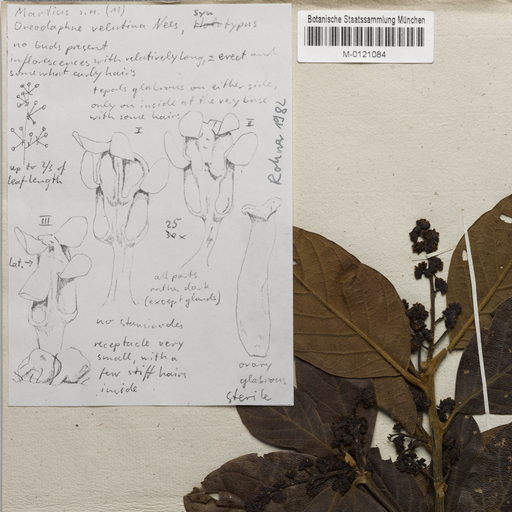 Martius s.n. (M)
Oreodaphne velutina Nees, Syntypus
no buds present
inflorescences with relatively long, ± erect and
somewhat curly hairs
tepals glabrous on either side,
only on inside at the very base
with some hairs
up to 2/3 of
leaf length
I
II
III
Lat. →
25
all parts
rather dark
(except glands)
no staminodes
receptacle very
small, with a
few stiff hairs
inside
ovary
glabrous
sterile
Rohwer 1982
Botanische Staatssammlung München
M-0121084